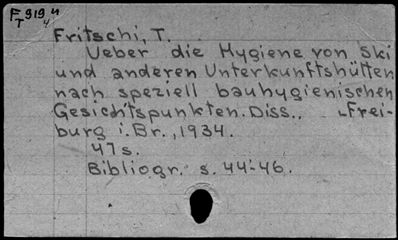 F 919 4
T 4
Fritschi, T.
Ueber die Hygiene von Ski
und anderen Unterkunftshütten
nach speziell bauhygienischen
Gesichtspunkten. Diss.. Frei-
burg i. Br., 1934.
47 s.
Bibliogr. s. 44-46.